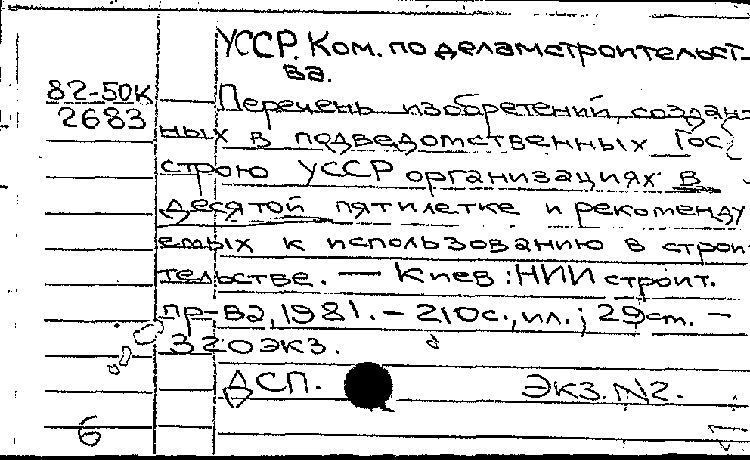 УССР. Ком. по делам строительст-
ва.
82-50К
2683
Перечень изобретений, создан-
ных в подведомственных Гос
строю УССР организациях в
десятой пятилетке и рекоменду
емых к использованию в строи
тельстве. — Киев : НИИ строит.
пр-ва, 1981. - 210с., ил.; 29см. -
320экз.
ДСП. Экз. N2.
6